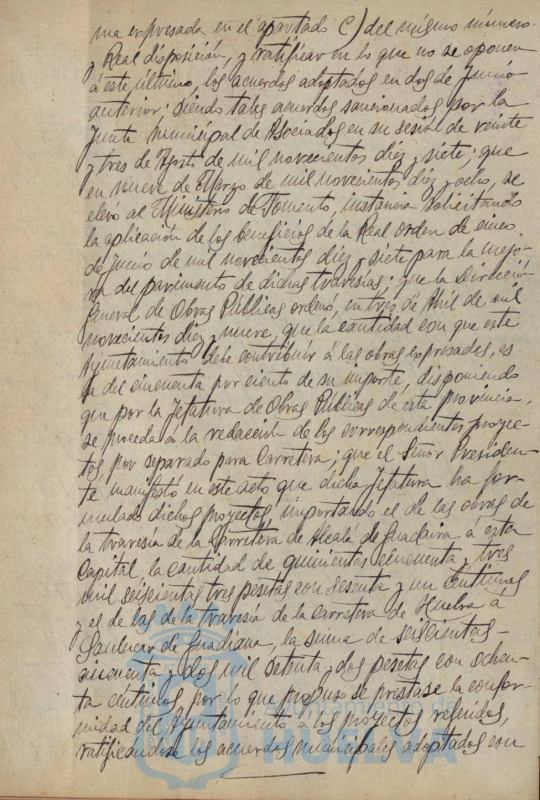 ma expresada en el apartado C) del mismo número
y Real disposición, y ratificar en lo que no se oponen
á este último, los acuerdos adoptados en dos de Junio
anterior; siendo tales acuerdos sancionados por la
Junta Municipal de Asociados en su sesión de veinte
y tres de Agosto de mil novecientos diez y siete; que
en nueve de Marzo de mil novecientos diez y ocho, se
elevó al Ministerio de Fomento, instancia solicitando
la aplicación de los beneficios de la Real orden de cinco
de Junio de mil novecientos diez y siete para la mejo-
ra del pavimento de dichas travesías; que la Dirección
General de Obras Públicas ordenó, en tres de Abril de mil
novecientos diez y nueve, que la cantidad con que este
Ayuntamiento debe contribuir á las obras expresadas, es
la del cincuenta por ciento de su importe, disponiendo
que por la Jefatura de Obras Públicas de esta provincia,
se proceda á la redacción de los correspondientes proyec-
tos, por separado para Carretera; que el Señor Presiden-
te manifestó en este acto que dicha Jefatura ha for-
mulado dichos proyectos, importando el de las obras de
la travesía de la Carretera de Alcalá de Guadaira á esta
Capital, la cantidad de quinientas cincuenta y tres
mil seiscientas tres pesetas con sesenta y un céntimos
y el de las de la travesía de la Carretera de Huelva á
Sanlucar de Guadiana, la suma de seiscientas
cincuenta y dos mil setenta y dos pesetas con ochen-
ta céntimos, por lo que propuso se prestase la confor-
midad del Ayuntamiento á los proyectos referidos,
ratificándose los acuerdos municipales adoptados con
Ayuntamiento de
HUELVA